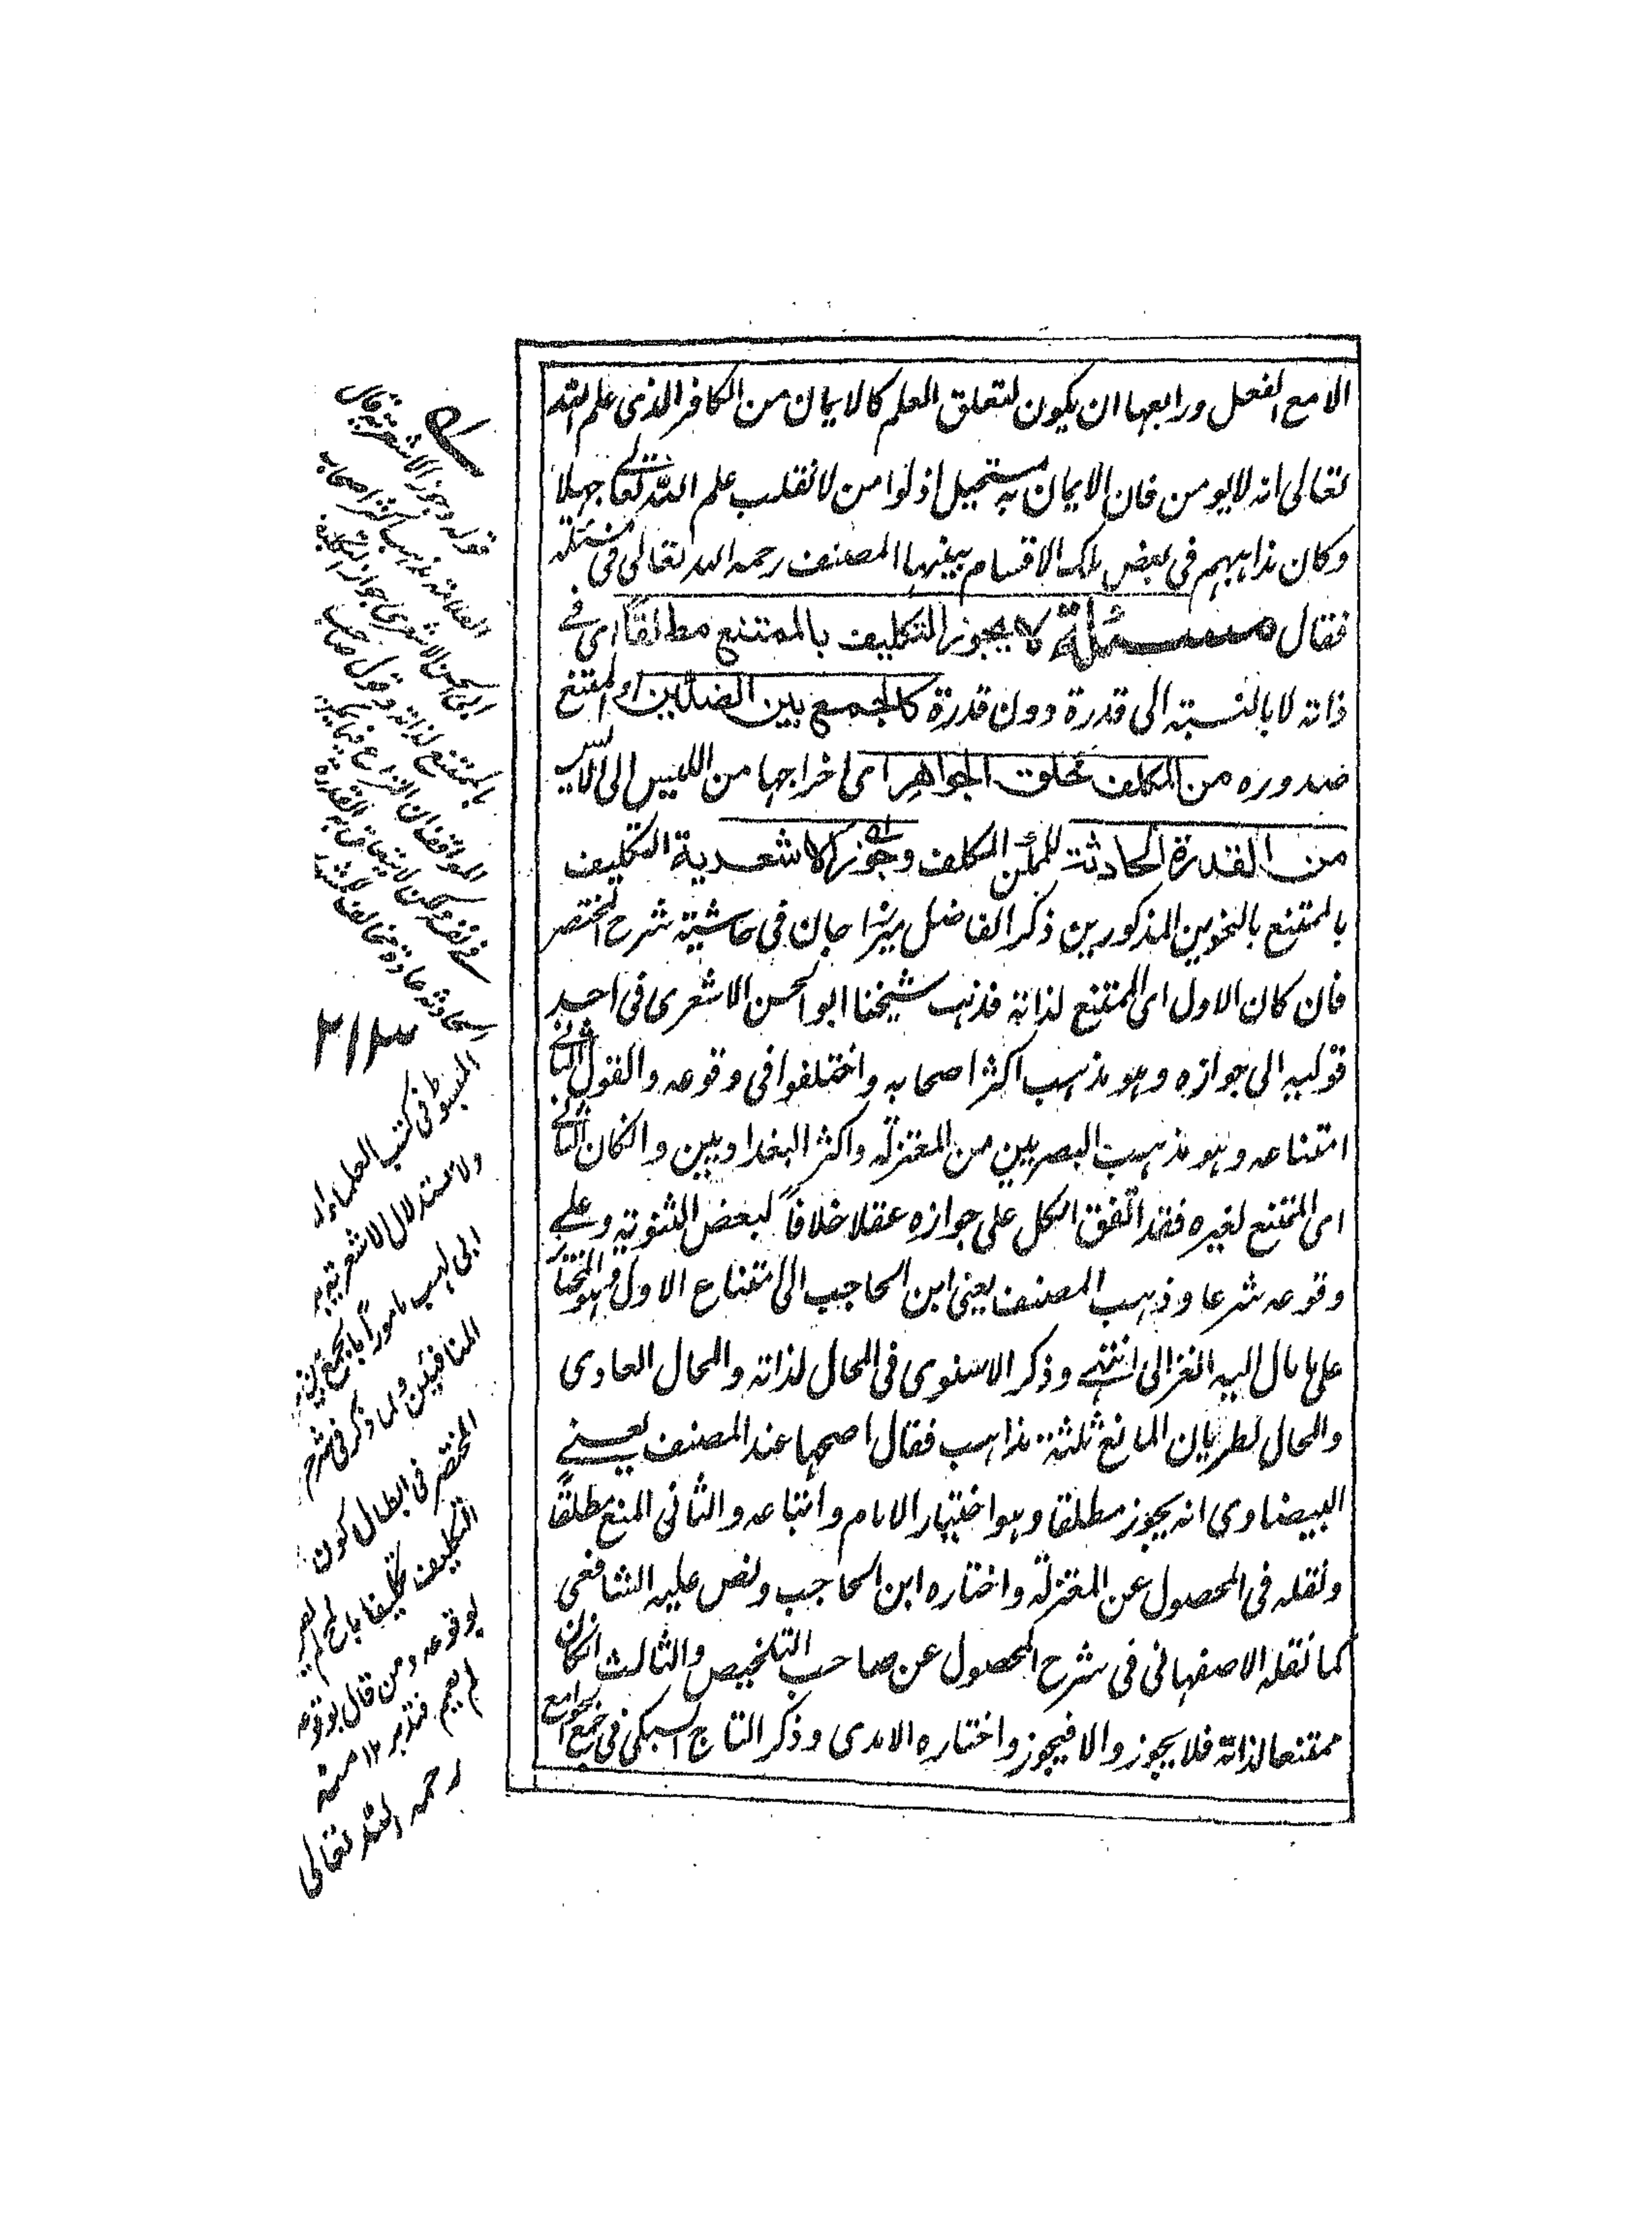 الا مع الفعل ورابعها ان يكون لتعلق العلم كالايمان من الكافر الذى علم الله
تعالى انه لا يومن فان الايمان به مستحيل اذ لو امن لانقلب علم الله تعالى جهلا
وكان مذاهبهم فى بعض تلك الاقسام بينها المصنف رحمه الله تعالى فى مسئلة
فقال مسئلة لا يجوز التكليف بالممتنع مطلقاً اى فى
ذاته لا بالنسبة الى قدرة دون قدرة كالجمع بين الضدين او الممتنع
صدوره من المكلف كخلق الجواهر اى اخراجها من الليس الى الايس
من القدرة الحادثة للممكن المكلف وجوز الاشعرية التكليف
بالممتنع بالنحوين المذكورين ذكر الفاضل ميرزا جان فى حاشية شرح المختصر
فان كان الاول اى الممتنع لذاته فذهب شيخنا ابو الحسن الاشعرى فى احد
قوليه الى جوازه وهو مذهب اكثر اصحابه واختلفوا فى وقوعه والقول الثانى
امتناعه وهو مذهب البصريين من المعتزلة واكثر البغداديين وان كان الثانى
اى الممتنع لغيره فقد اتفق الكل على جوازه عقلا خلافاً لبعض الثنوية وعلى
وقوعه شرعا وذهب المصنف يعنى ابن الحاجب الى امتناع الاول وهو المختار
على ما مال اليه الغزالى انتهى وذكر الاسنوى فى المحال لذاته والمحال العادى
والمحال لطريان المانع ثلثة مذاهب فقال اصحها عند المصنف يعنى
البيضاوى انه يجوز مطلقا وهو اختيار الامام واتباعه والثانى المنع مطلقاً
ونقله فى المحصول عن المعتزلة واختاره ابن الحاجب ونص عليه الشافعى
كما نقله الاصفهانى فى شرح المحصول عن صاحب التلخيص والثالث ان كان
ممتنعا لذاته فلا يجوز والا فيجوز واختاره الامدى وذكر التاج السبكى فى جمع الجوامع
قوله وجوز الاشعرية قال
العلامة ذهب اكثر اصحاب
ابى الحسن الاشعرى جواز التكليف
بالممتنع لذاته وقول صاحب
المواقف ان النزاع فيما
يمكن لا يتعلق به القدرة
الحادثة عادة مخالف
المبسوط فى كتب العلماء
ولاستدلال الاشعرية
ابى لهب مامورا بالجمع بين
المتنافيين ولما ذكر فى شرح
المختصر فى ابطال كون
التكليف تكليفا بالمح
بوقوعه ومن قال بوقوعه
لم يعم فتدبر ١٢ منه
رحمه الله تعالى